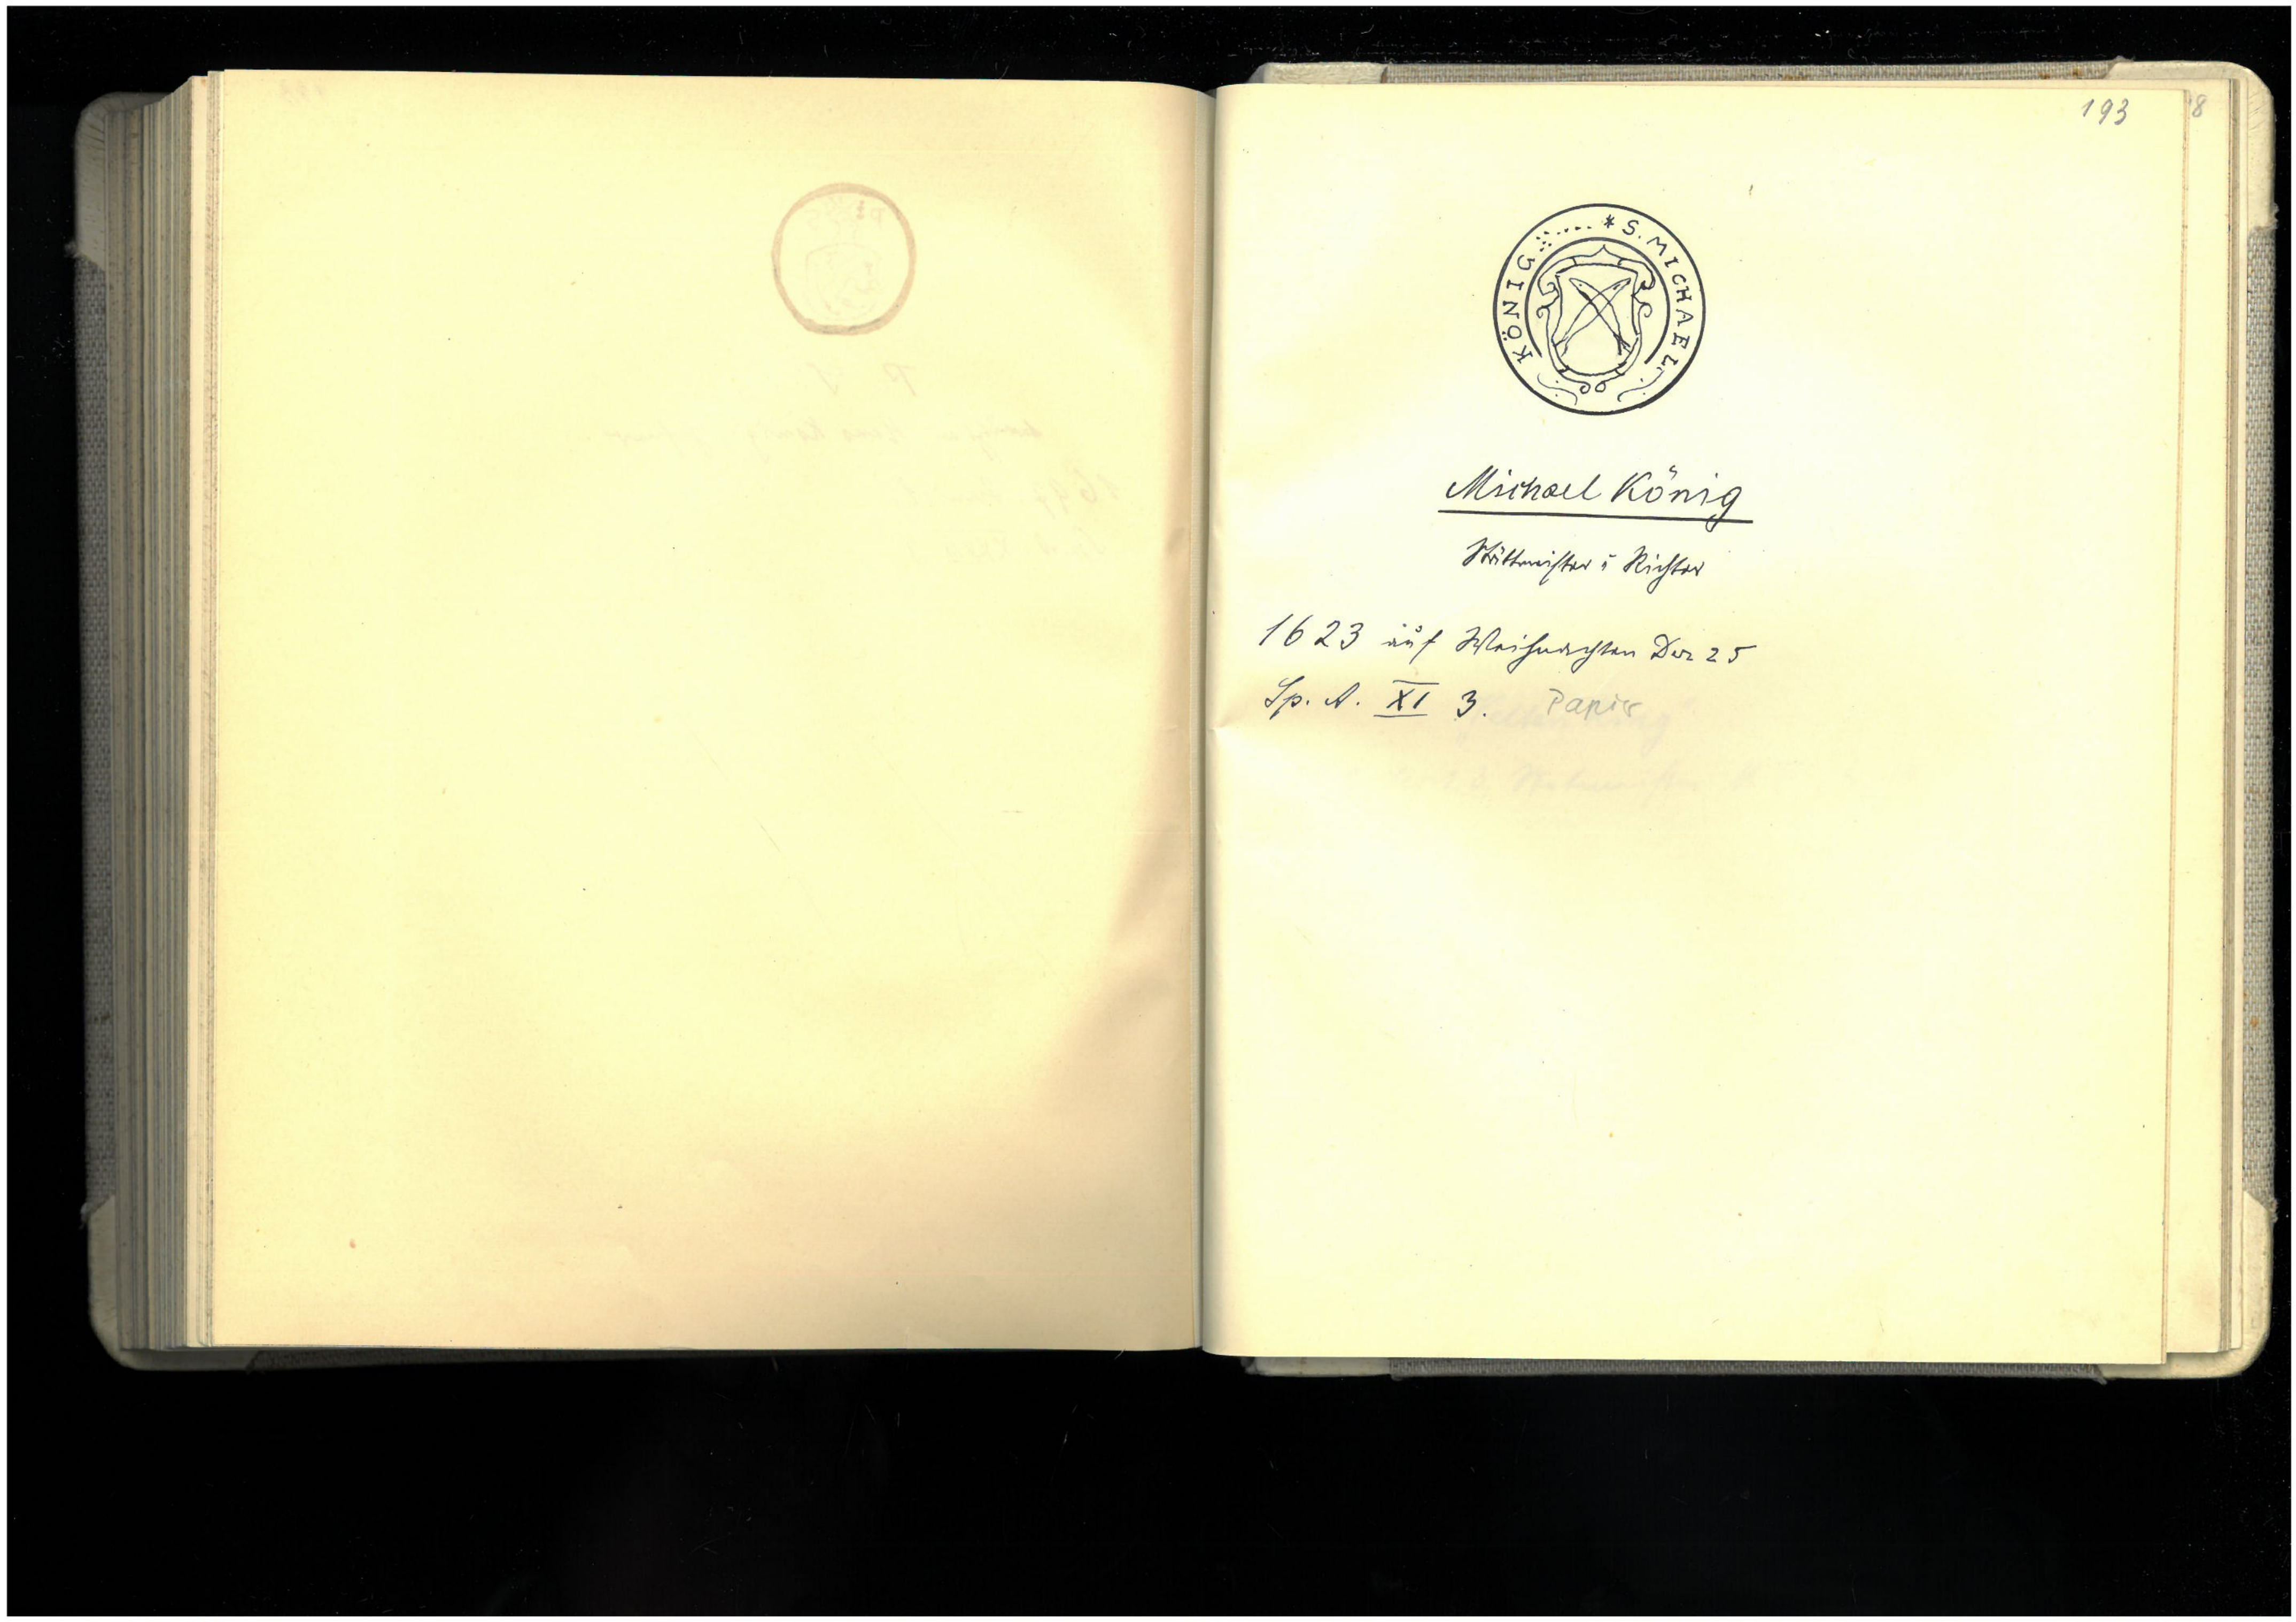 193
8
* S. MICHAEL. KÖNIG
Michael König
Stättmeister u Richter
1623 auf Weihnachten Dez 25
Sp. A. XI 3. Papier